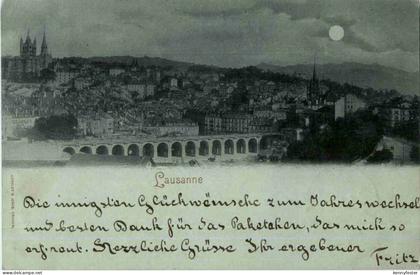 Lausanne
Die innigsten Glückwünsche zum Jahreswechsel
und besten Dank für das Paketchen, das mich so
erfreut. Herzliche Grüsse Ihr ergebener
Fritz
kennyfoster